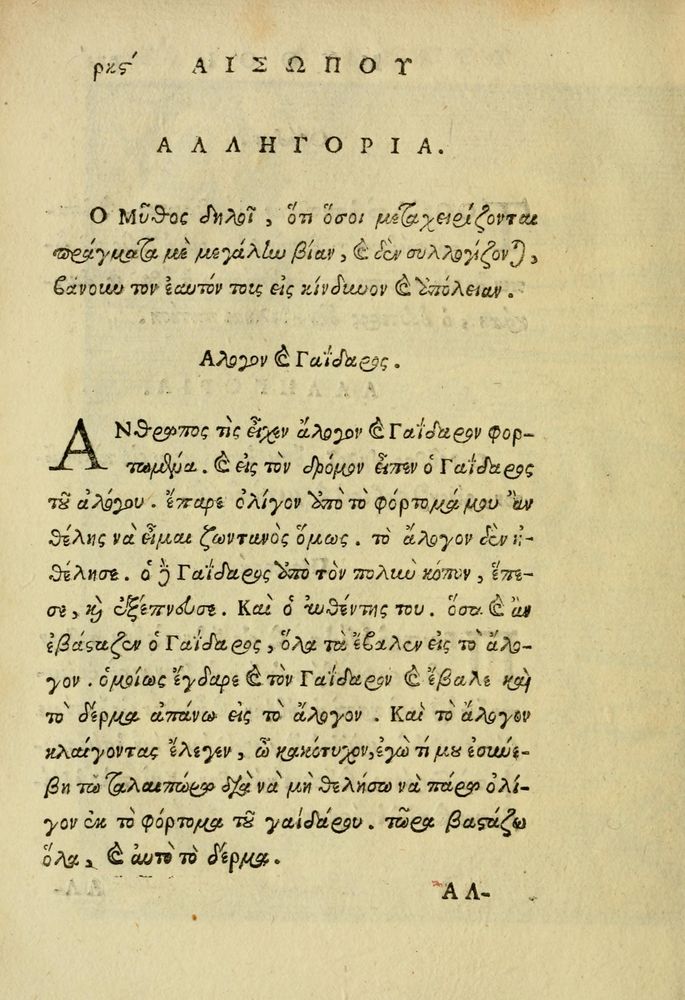 ρκς΄ ΑΙΣΩΠΟΥ
ΑΛΛΗΓΟΡΙΑ.
Ο Μῦθος δηλοῖ, ὅτι ὅσοι μεταχειρίζονται
πράγματα μὲ μεγάλην βίαν, καὶ δὲν συλλογίζονται,
βάνουν τον ἑαυτόν τους εἰς κίνδυνον καὶ ἀπόλειαν.
Αλογον καὶ Γαΐδαρος.
ΑΝθρωπος τὶς εἶχεν ἄλογον καὶ Γαΐδαρον φορ-
τωμένα. καὶ εἰς τὸν δρόμον εἶπεν ὁ Γαΐδαρος
τοῦ ἀλόγου. ἔπαρε ὀλίγον ἀπὸ τὸ φόρτομά μου ἂν
θέλης νὰ εἶμαι ζωντανὸς ὅμως. τὸ ἄλογον δὲν ἠ-
θέλησε. ὁ δὲ Γαΐδαρος ἀπὸ τὸν πολιὺ κόπον, ἔπε-
σε, καὶ ἐξέπνευσε. Καὶ ὁ ἀυθέντης του. ὅσα καὶ ἂν
ἐβάσταζεν ὁ Γαΐδαρος, ὅλα τὰ ἔβαλεν εἰς τὸ ἄλο-
γον. ὁμοίως ἔγδαρε καὶ τὸν Γαΐδαρον καὶ ἔβαλε καὶ
τὸ δέρμα ἀπάνω εἰς τὸ ἄλογον. Καὶ τὸ ἄλογον
κλαίγοντας ἔλεγεν, ὦ κακότυχον, ἐγὼ τί μου ἐσυνέ-
βη τῶ ταλαιπώρω διὰ νὰ μὴ θελήσω νὰ πάρω ὀλί-
γον ἐκ τὸ φόρτομα τοῦ γαϊδάρου. τῶρα βαστάζω
ὅλα, καὶ ἀυτὸ τὸ δέρμα.
ΑΛ-